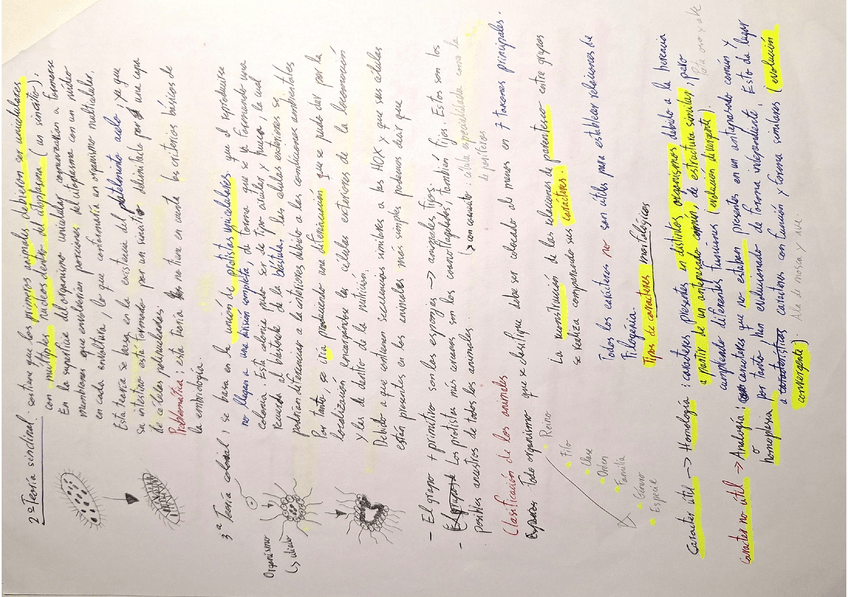 2ª Teoría sincitial: sostiene que los primeros animales debieron ser unicelulares
con múltiples núcleos dentro del citoplasma (un sincitio).
En la superficie del organismo unicelular empezarían a formarse
membranas que envolverían porciones del citoplasma con un núcleo
en cada envoltura, lo que conformaría un organismo multicelular.
Esta teoría se basa en la existencia del platelminto acelo, ya que
su intestino está formado por un sincitio delimitado por una capa
de células polinucleadas.
Problemática: esta teoría no tiene en cuenta los criterios básicos de
la embriología.
3ª Teoría colonial: se basa en la unión de protistas unicelulares que al reproducirse
no llegan a una división completa, de forma que se va formando una
colonia. Esta colonia pudo ser de tipo catalax, hueca, la cual
recuerda al blastocele de la blástula. Las células exteriores se
podrían diferenciar a la interiores debido a las condiciones ambientales
Por tanto se iría produciendo una diferenciación que se puede dar por la
localización encargándose las células exteriores de la locomoción
y las de dentro de la nutrición.
Debido a que contienen secuencias similares a las HOX y que sus células
están presentes en los animales más simples podemos decir que
Organismo
↳ diario
- El grupo + primitivo son las esponjas → animales fijos.
- Los protistas más cercanos son los coanoflagelados, también fijos. Estos son los
posibles ancestros de todos los animales.
↳ con coanocito: célula especializada como la
de poríferos
Clasificación de los animales
Todo organismo que se clasifique debe ser colocado al menos en 7 taxones principales.
• Reino
• Filo
• Clase
• Orden
• Familia
• Género
• Especie
La reconstrucción de las relaciones de parentesco entre grupos
se realiza comparando sus caracteres.
Todos los caracteres no son útiles para establecer relaciones de
Filogenia.
Tipos de caracteres morfológicos
Caracter útil → Homología: caracteres presentes en distintos organismos debido a la herencia
a partir de un antepasado común, de estructura similar, pero
cumpliendo diferentes funciones (evolución divergente). Pata oso y ave
Caracter no útil → Analogía: caracteres que no estaban presentes en un antepasado común y
o por tanto han evolucionado de forma independiente. Esto da lugar
homoplasia a caracteres con función y forma similares (evolución
convergente) Ala de mosca y ave